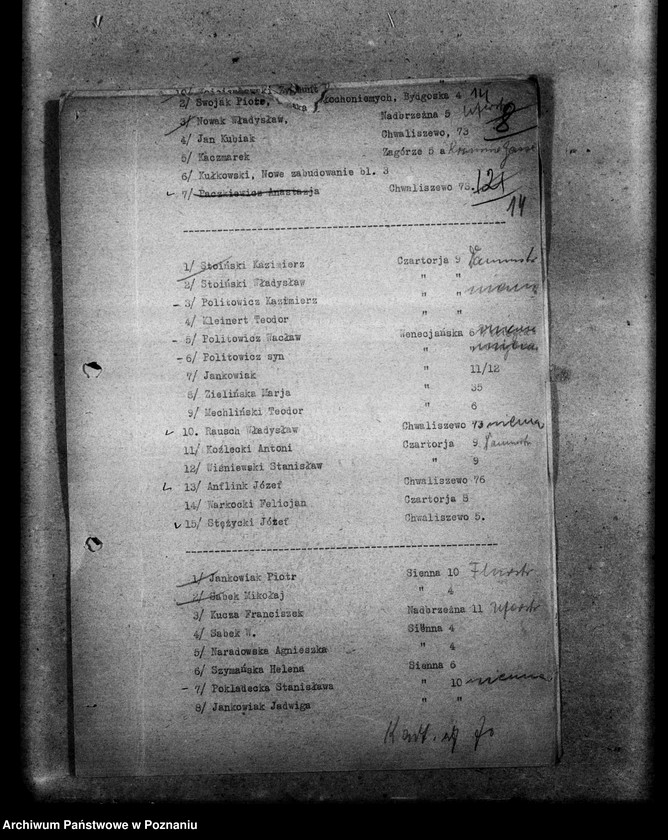 2/ Swojak Piotr, Bydgoska 4 14
3/ Nowak Władysław, Nadbrzeżna 5 8
4/ Jan Kubiak Chwaliszewo, 73
5/ Kaczmarek Zagórze 5 a
6/ Kułkowski, Nowe zabudowanie bl. 3
7/ Paczkiewicz Anastazja Chwaliszewo 73. 12
14
1/ Stoiński Kazimierz Czartorja 9
2/ Stoiński Władysław " "
- 3/ Politowicz Kazimierz " "
4/ Kleinert Teodor " "
- 5/ Politowicz Wacław Wenecjańska 6
- 6/ Politowicz syn "
7/ Jankowiak " 11/12
8/ Zielińska Marja " 35
9/ Mechliński Teodor " 6
10. Rausch Władysław Chwaliszewo 73
11/ Koślecki Antoni Czartorja 9
12/ Wiśniewski Stanisław " 9
13/ Anflink Józef Chwaliszewo 76
14/ Warkocki Felicjan Czartorja 8
15/ Stężycki Józef Chwaliszewo 5.
1/ Jankowiak Piotr Sienna 10
2/ Sabek Mikołaj " 4
3/ Kucza Franciszek Nadbrzeżna 11
4/ Sabek W. Sienna 4
5/ Naradowska Agnieszka " 4
6/ Szymańska Helena Sienna 6
- 7/ Pokladecka Stanisława " 10
8/ Jankowiak Jadwiga " "
Archiwum Państwowe w Poznaniu